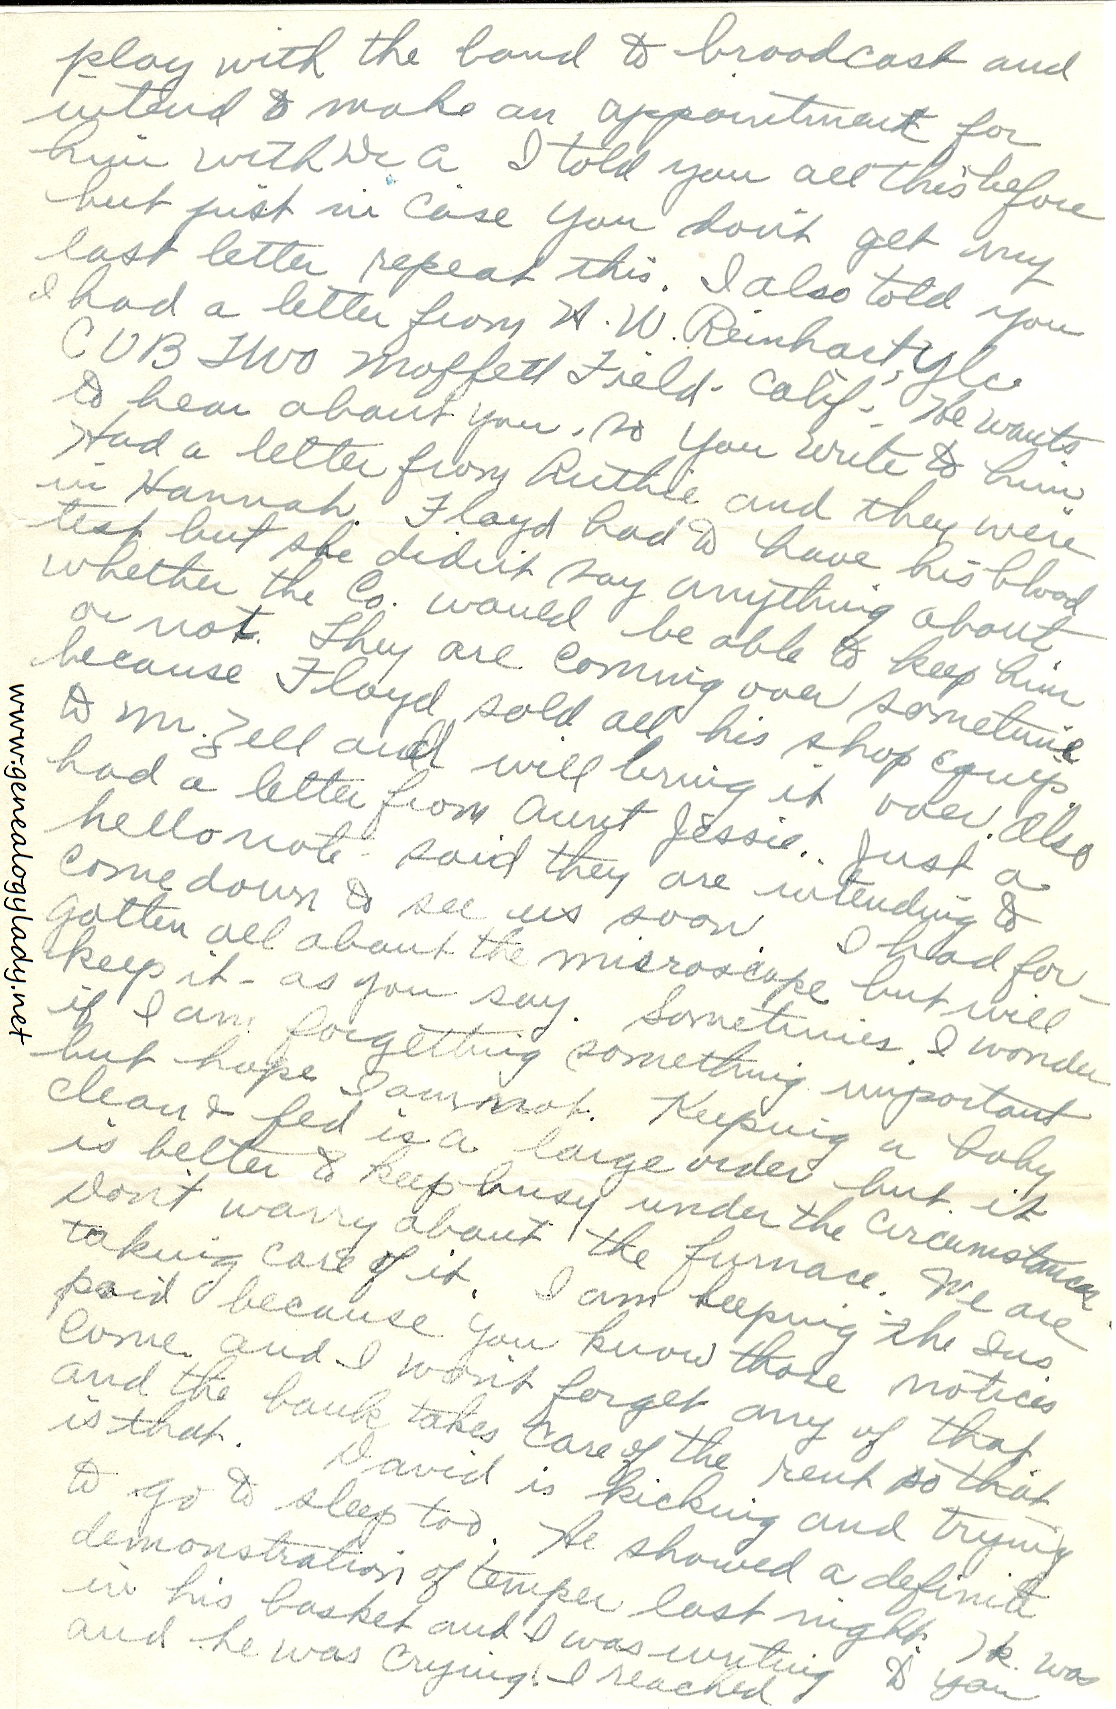 play with the band to broadcast and
intend to make an appointment for
him with Dr A I told you all this before
but just in case you don't get my
last letter repeat this. I also told you
I had a letter from H. W. Reinhart, Y1c
CUB TWO Moffett Field - Calif. He wants
to hear about you. so you write to him
Had a letter from Ruthie and they were
in Hannah. Floyd had to have his blood
test but she didn't say anything about
whether the Co. would be able to keep him
or not. They are coming over sometime
because Floyd sold all his shop equip
to Mr. Zell and will bring it over. Also
had a letter from Aunt Jessie.. Just a
hello note - said they are intending to
come down to see us soon I had for-
gotten all about the microscope but will
keep it - as you say. Sometimes I wonder
if I am forgetting something important
but hope I am not. Keeping a baby
clean & fed is a large order but it
is better to keep busy under the circumstances.
Don't worry about the furnace. We are
taking care of it. I am keeping the Ins
paid because you know those notices
come and I won't forget any of that
and the bank takes care of the rent so that
is that. David is kicking and trying
to go to sleep too. He showed a definite
demonstration of temper last night. He was
in his basket and I was writing to you
and he was crying. I reached
www.genealogylady.net